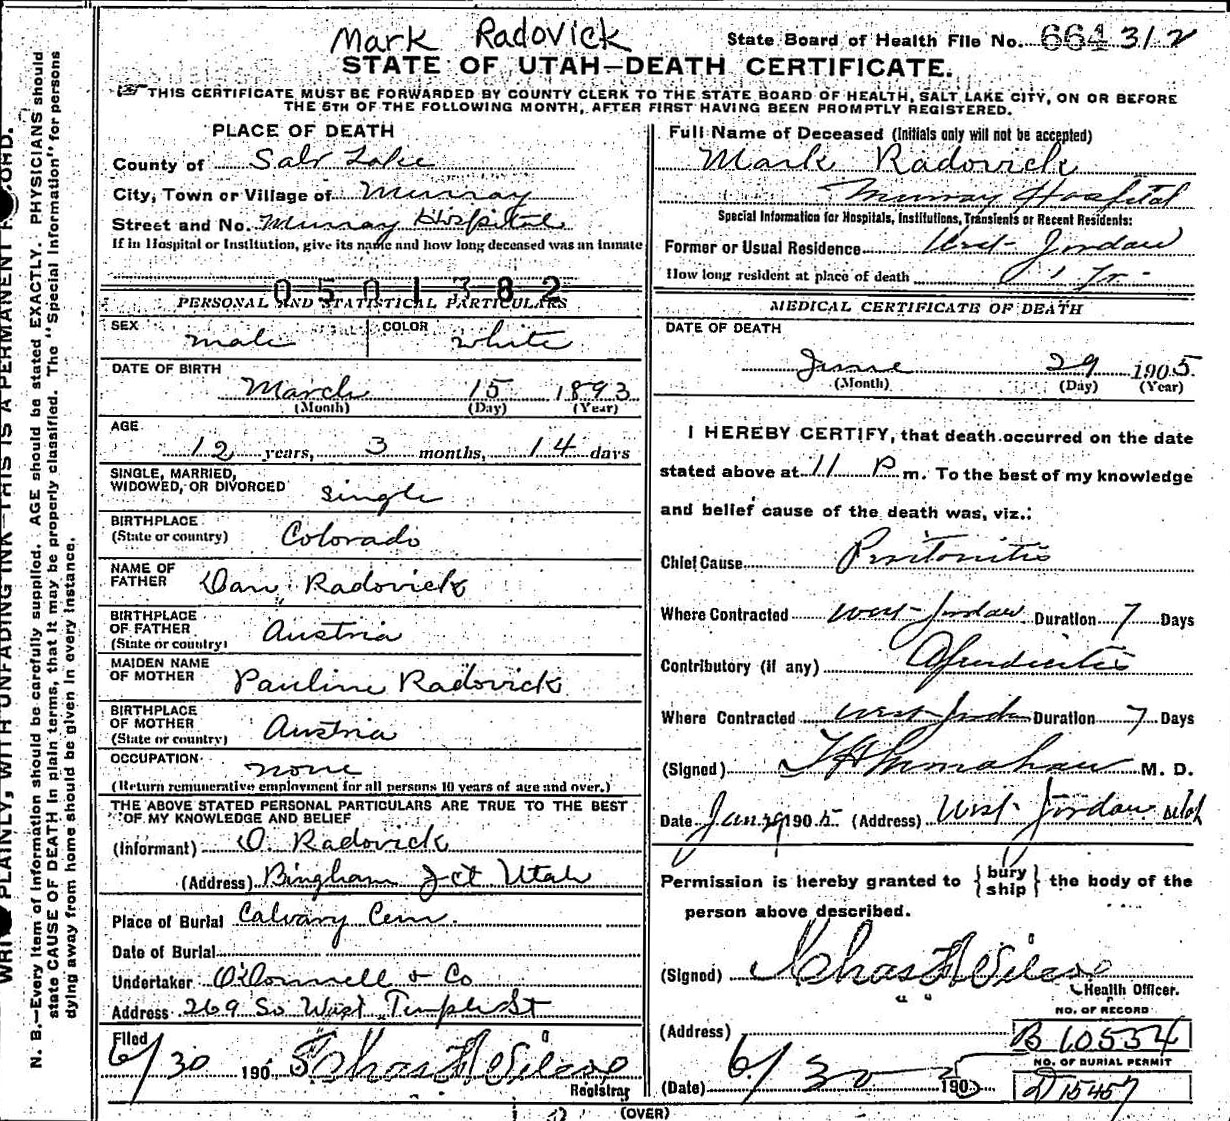 Mark Radovick
State Board of Health File No. 664 312
STATE OF UTAH—DEATH CERTIFICATE.
THIS CERTIFICATE MUST BE FORWARDED BY COUNTY CLERK TO THE STATE BOARD OF HEALTH, SALT LAKE CITY, ON OR BEFORE
THE 5TH OF THE FOLLOWING MONTH, AFTER FIRST HAVING BEEN PROMPTLY REGISTERED.
PLACE OF DEATH
County of Salt Lake
City, Town or Village of Murray
Street and No. Murray Hospital
If in Hospital or Institution, give its name and how long deceased was an inmate
0501382
PERSONAL AND STATISTICAL PARTICULARS
SEX male COLOR white
DATE OF BIRTH
March 15 1893
(Month) (Day) (Year)
AGE
12 years, 3 months, 14 days
SINGLE, MARRIED,
WIDOWED, OR DIVORCED single
BIRTHPLACE
(State or country) Colorado
NAME OF
FATHER Dan Radovick
BIRTHPLACE
OF FATHER
(State or country) Austria
MAIDEN NAME
OF MOTHER Pauline Radovick
BIRTHPLACE
OF MOTHER
(State or country) Austria
OCCUPATION none
(Return remunerative employment for all persons 10 years of age and over.)
THE ABOVE STATED PERSONAL PARTICULARS ARE TRUE TO THE BEST
OF MY KNOWLEDGE AND BELIEF
(Informant) D. Radovick
(Address) Bingham Jct Utah
Place of Burial Calvary Cem.
Date of Burial
Undertaker O'Donnell & Co
Address 269 So West Temple St
Filed
6/30 190 5 Chas
Registrar
Full Name of Deceased (Initials only will not be accepted)
Mark Radovick
Murray Hospital
Special Information for Hospitals, Institutions, Transients or Recent Residents:
Former or Usual Residence West Jordan
How long resident at place of death 1 Yr.
MEDICAL CERTIFICATE OF DEATH
DATE OF DEATH
June 29 1905
(Month) (Day) (Year)
I HEREBY CERTIFY, that death occurred on the date
stated above at 11 P m. To the best of my knowledge
and belief cause of the death was, viz.:
Chief Cause Peritonitis
Where Contracted West Jordan Duration 7 Days
Contributory (if any) Apendicitis
Where Contracted West Jordan Duration 7 Days
(Signed) M. D.
Date 29 1905 (Address) West Jordan Utah
Permission is hereby granted to { bury ship } the body of the
person above described.
(Signed) Chas
Health Officer.
(Address)
(Date) 6/30 1905
NO. OF RECORD
B 10534
NO. OF BURIAL PERMIT
D 15457
(OVER)
WRITE PLAINLY, WITH UNFADING INK—THIS IS A PERMANENT RECORD.
N. B.—Every item of information should be carefully supplied. AGE should be stated EXACTLY. PHYSICIANS should
state CAUSE OF DEATH in plain terms, that it may be properly classified. The "Special Information" for persons
dying away from home should be given in every instance.